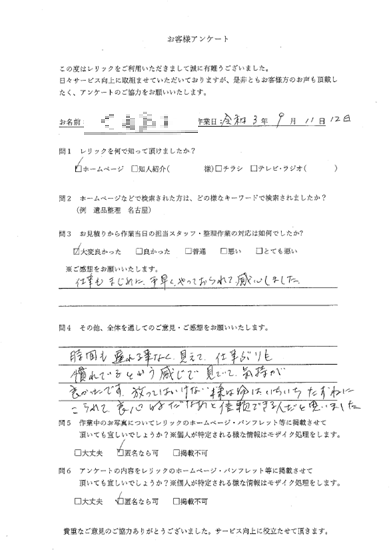 お客様アンケート
この度はレリックをご利用いただきまして誠に有難うございました。
日々サービス向上に取組ませていただいておりますが、是非ともお客様方のお声も頂戴し
たく、アンケートのご協力をお願いいたします。
お名前: 作業日:令和3年9月11日12日
問1 レリックを何で知って頂けましたか?
☑ホームページ □知人紹介( 様)□チラシ □テレビ・ラジオ( )
問2 ホームページなどで検索された方は、どの様なキーワードで検索されましたか?
(例 遺品整理 名古屋)
問3 お見積りから作業当日の担当スタッフ・整理作業の対応は如何でしたか?
☑大変良かった □良かった □普通 □悪い □とても悪い
※ご感想をお願いいたします。
仕事もまじめに、手早くやっておられて感心しました。
問4 その他、全体を通してのご意見・ご感想をお願いいたします。
時間も遅れる事なく、見えて、仕事ぶりも
慣れているという感じで見ていて、気持が
良かったです。放ってはいけない様な いちいちたずねに
こられて、良心 だなあと信頼できる人だと思いました
問5 作業中のお写真についてレリックのホームページ・パンフレット等に掲載させて
頂いても宜しいでしょうか?※個人が特定される様な情報はモザイク処理をします。
□大丈夫 ☑匿名なら可 □掲載不可
問6 アンケートの内容をレリックのホームページ・パンフレット等に掲載させて
頂いても宜しいでしょうか?※個人が特定される様な情報はモザイク処理をします。
□大丈夫 ☑匿名なら可 □掲載不可
貴重なご意見のご協力ありがとうございました。サービス向上に役立たせて頂きます。